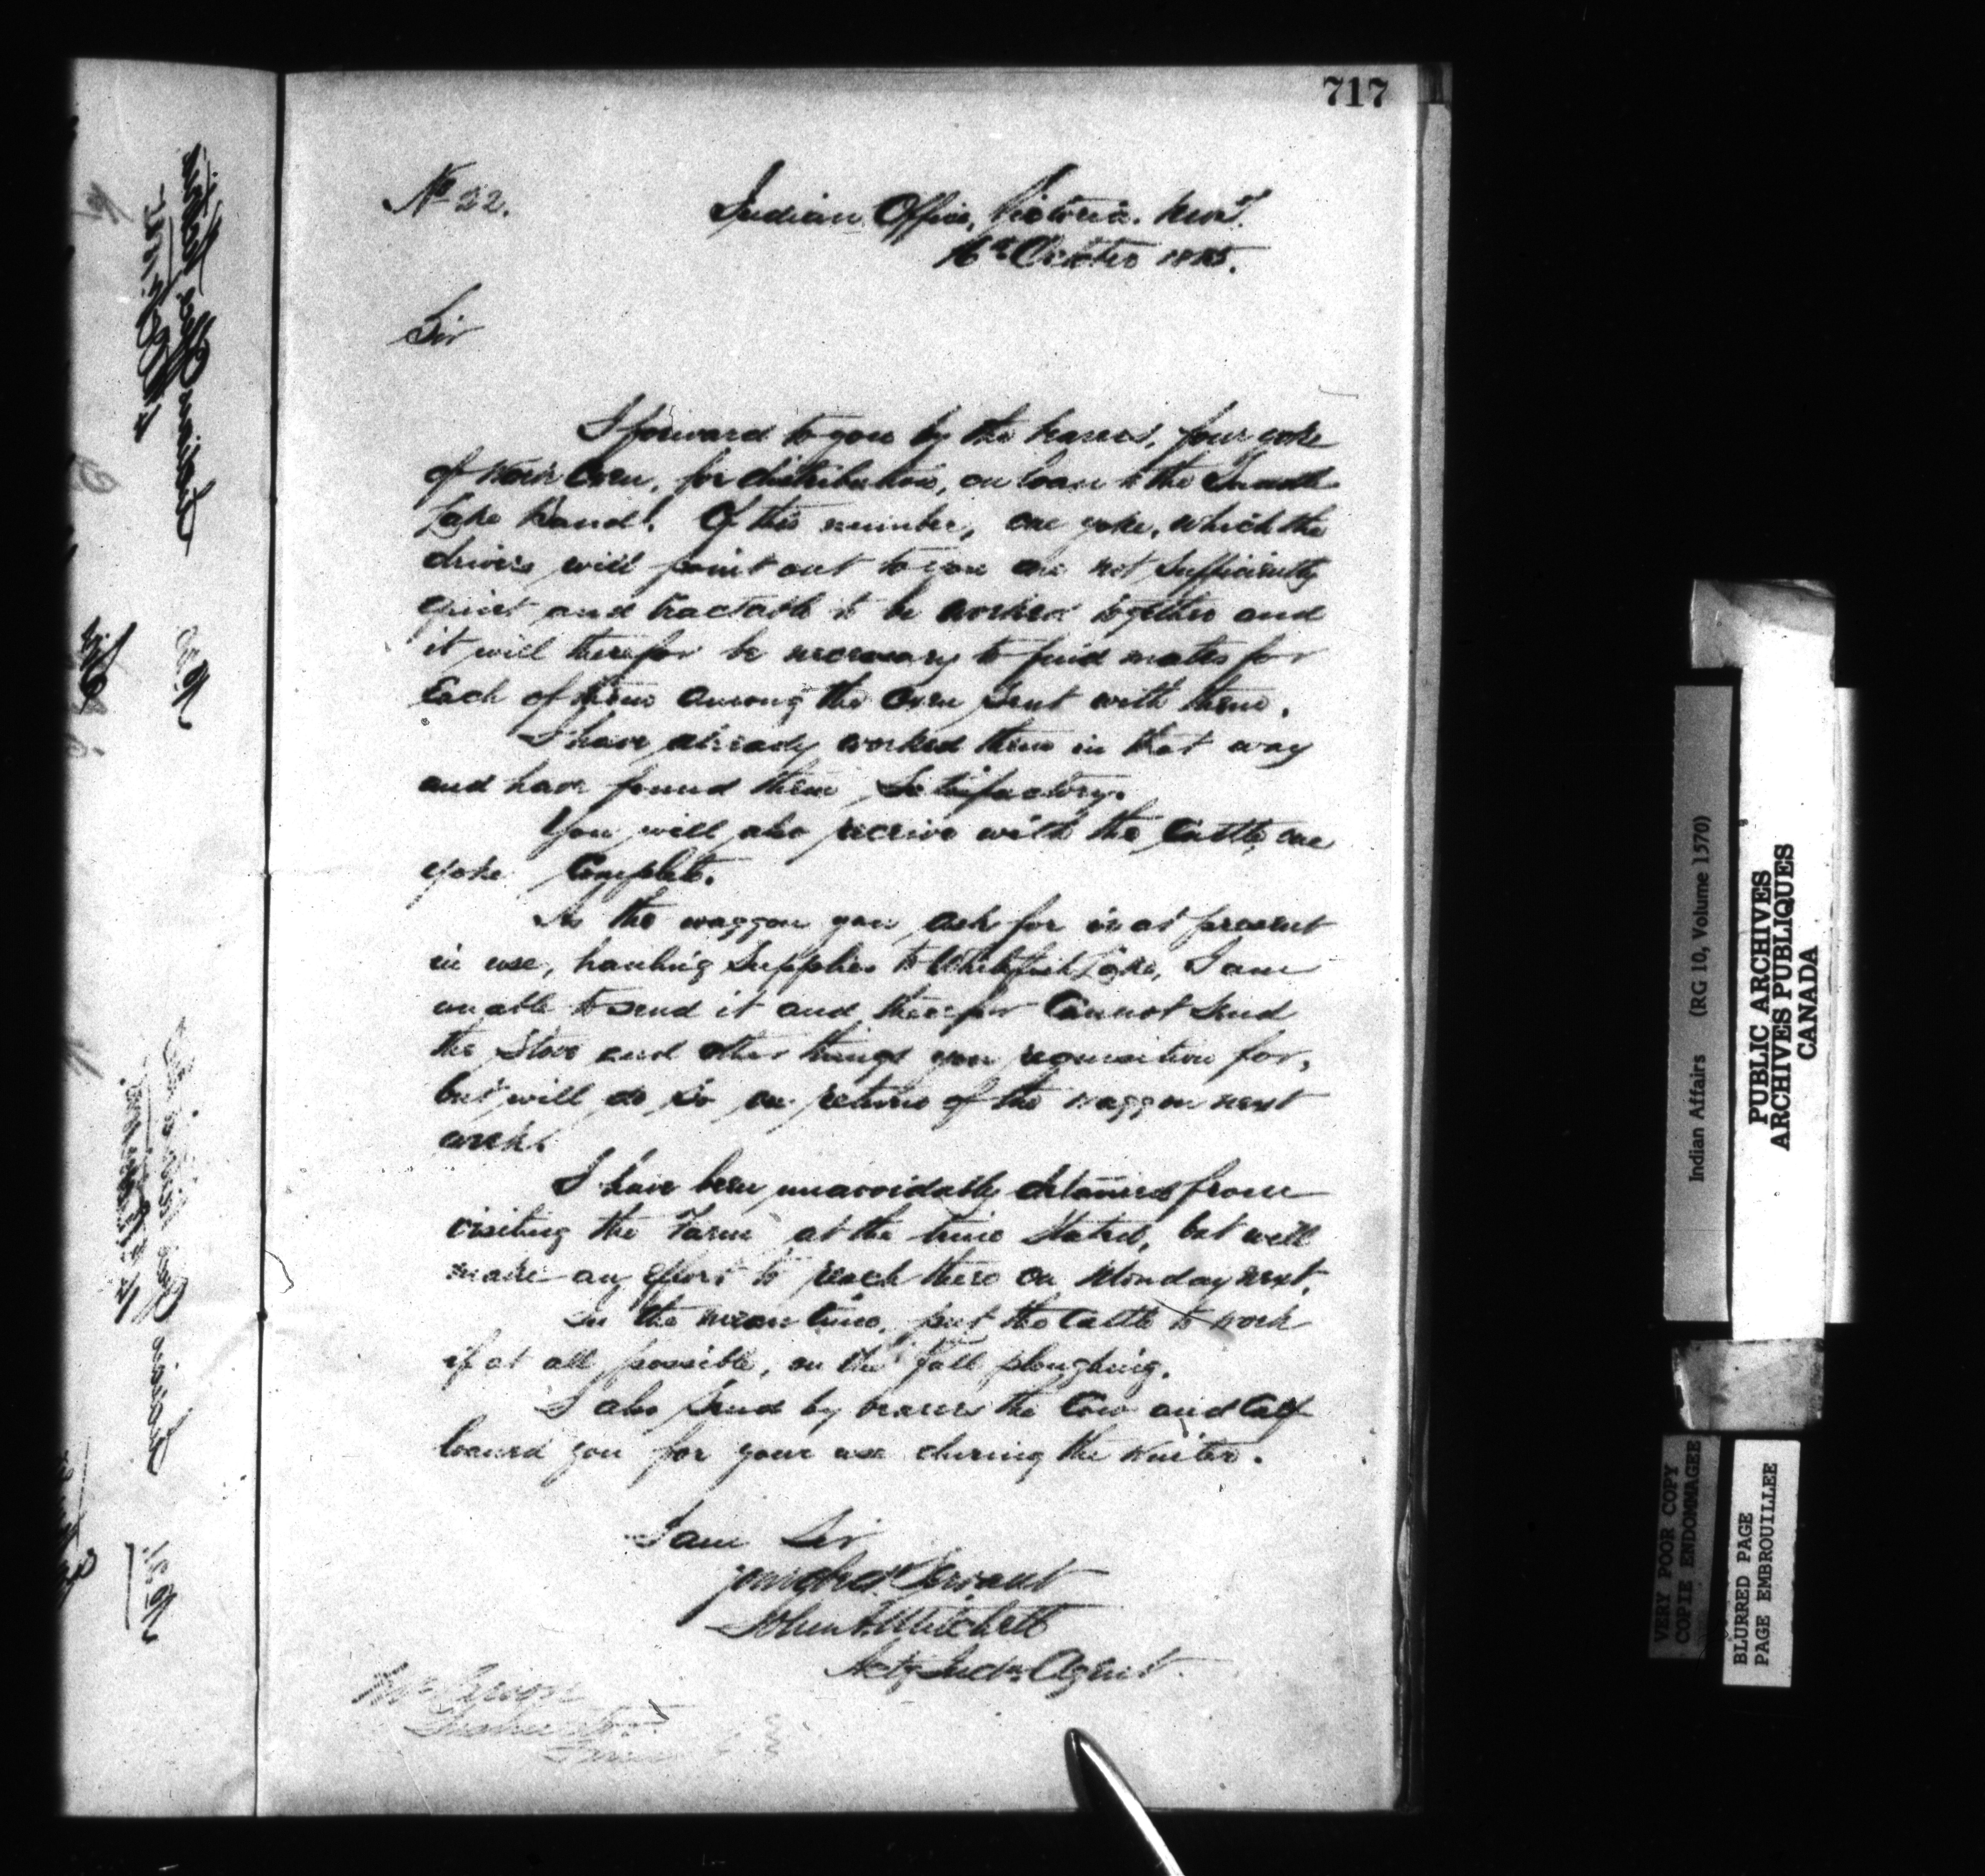 717
No 22.
Indian Office, Victoria. N.W.T.
16th October 1885.
Sir
I forward to you by the bearers, four yoke
of Work Oxen, for distribution, on loan to the
Lake Band. Of this number, one yoke, which the
drivers will point out to you are not sufficiently
quiet and tractable to be worked together and
it will therefor be necessary to find mates for
Each of them among the Oxen sent with them.
I have already worked them in that way
and have found them Satisfactory.
You will also receive with the Cattle, one
yoke Complete.
As the waggon you ask for is at present
in use, hauling Supplies to Whitefish Lake, I am
unable to send it and therefor Cannot Send
the Stove and other things you requisition for,
but will do so on return of the waggon next
week.
I have been unavoidably detained from
visiting the Farm at the time Stated, but will
make an effort to reach there on Monday next.
In the mean time, put the Cattle to work
if at all possible, on the fall ploughing.
I also Send by bearers the Cow and Calf
loaned you for your use during the Winter.
I am Sir
your obedt Servant
John A. Mitchell
Actg Indn Agent
Indian Affairs (RG 10, Volume 1570)
PUBLIC ARCHIVES
ARCHIVES PUBLIQUES
CANADA
VERY POOR COPY
COPIE ENDOMMAGEE
BLURRED PAGE
PAGE EMBROUILLEE